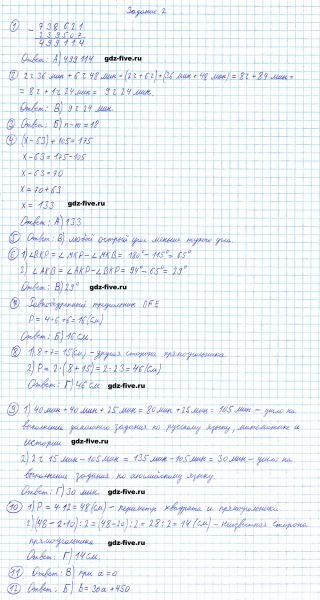 Задание 2
① - 738621
239507
499114
Ответ: А) 499114 gdz-five.ru
② 2ч 36 мин + 6ч 48 мин = (2ч + 6ч) + (36 мин + 48 мин) = 8ч + 84 мин =
= 8ч + 1ч 24 мин = 9ч 24 мин.
Ответ: В) 9ч 24 мин.
③ Ответ: Б) n - m = 18
④ (х - 63) + 105 = 175
х - 63 = 175 - 105
х - 63 = 70
х = 70 + 63
х = 133 gdz-five.ru
Ответ: А) 133
⑤ Ответ: В) любой острый угол меньше тупого угла.
⑥ 1) ∠BKP = ∠MKP - ∠MKB = 180° - 115° = 65°
2) ∠AKB = ∠AKP - ∠BKP = 94° - 65° = 29°
Ответ: В) 29° gdz-five.ru
⑦ Равнобедренный треугольник DFE
P = 4 + 6 + 6 = 16 (см)
Ответ: Б) 16 см. gdz-five.ru
⑧ 1) 8 + 7 = 15 (см) - другая сторона прямоугольника
2) P = 2 · (8 + 15) = 2 · 23 = 46 (см)
Ответ: Г) 46 см gdz-five.ru
⑨ 1) 40 мин + 40 мин + 25 мин = 80 мин + 25 мин = 105 мин - ушло на
выполнение домашнего задания по русскому языку, математике и
истории gdz-five.ru
2) 2ч 15 мин - 105 мин = 135 мин - 105 мин = 30 мин - ушло на
выполнение задания по английскому языку.
Ответ: Г) 30 мин. gdz-five.ru
⑩ 1) P = 4 · 12 = 48 (см) - периметр квадрата и прямоугольника
2) (48 - 2 · 10) : 2 = (48 - 20) : 2 = 28 : 2 = 14 (см) - неизвестная сторона
прямоугольника
Ответ: Г) 14 см. gdz-five.ru
⑪ Ответ: В) при а = 0
⑫ Ответ: Б) b = 30a + 450